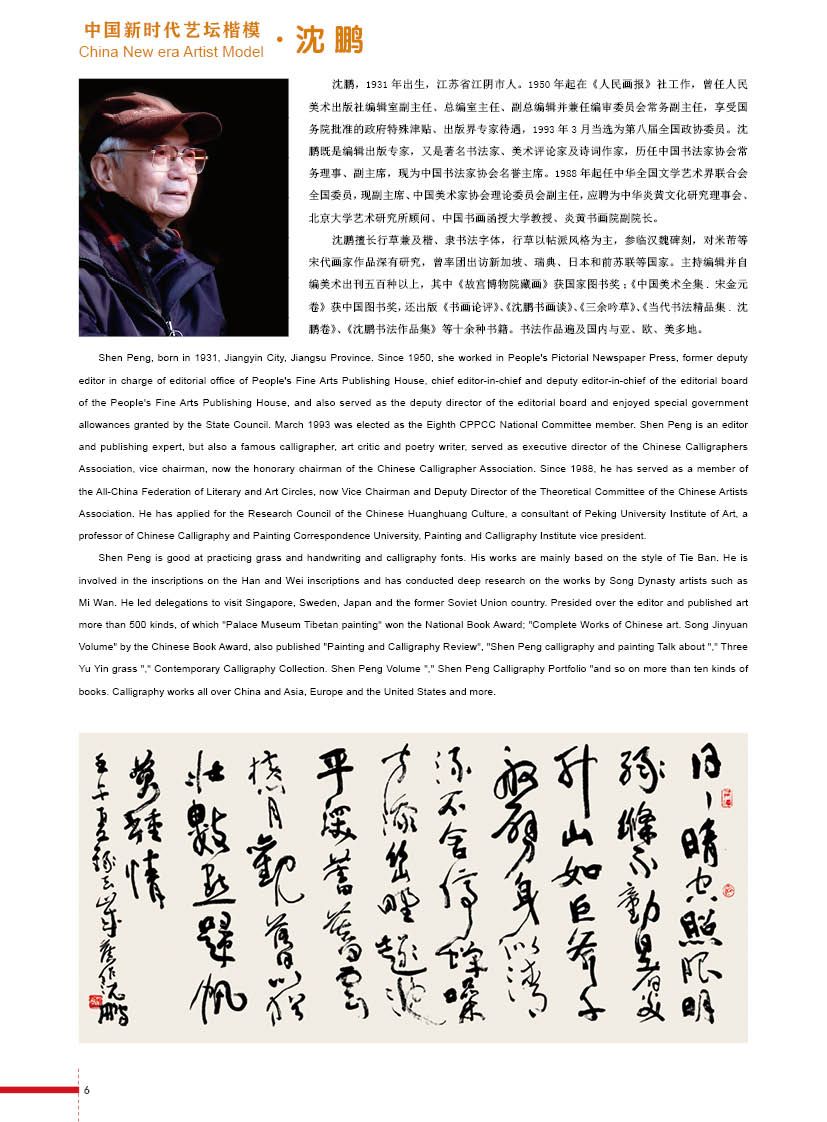 中国新时代艺坛楷模
China New era Artist Model
·沈 鹏
沈鹏，1931 年出生，江苏省江阴市人。1950 年起在《人民画报》社工作，曾任人民
美术出版社编辑室副主任、总编室主任、副总编辑并兼任编审委员会常务副主任，享受国
务院批准的政府特殊津贴、出版界专家待遇，1993 年 3 月当选为第八届全国政协委员。沈
鹏既是编辑出版专家，又是著名书法家、美术评论家及诗词作家，历任中国书法家协会常
务理事、副主席，现为中国书法家协会名誉主席。1988 年起任中华全国文学艺术界联合会
全国委员，现副主席、中国美术家协会理论委员会副主任，应聘为中华炎黄文化研究理事会、
北京大学艺术研究所顾问、中国书画函授大学教授、炎黄书画院副院长。
沈鹏擅长行草兼及楷、隶书法字体，行草以帖派风格为主，参临汉魏碑刻，对米芾等
宋代画家作品深有研究，曾率团出访新加坡、瑞典、日本和前苏联等国家。主持编辑并自
编美术出刊五百种以上，其中《故宫博物院藏画》获国家图书奖；《中国美术全集．宋金元
卷》获中国图书奖，还出版《书画论评》、《沈鹏书画谈》、《三余吟草》、《当代书法精品集．沈
鹏卷》、《沈鹏书法作品集》等十余种书籍。书法作品遍及国内与亚、欧、美多地。
Shen Peng, born in 1931, Jiangyin City, Jiangsu Province. Since 1950, she worked in People's Pictorial Newspaper Press, former deputy
editor in charge of editorial office of People's Fine Arts Publishing House, chief editor-in-chief and deputy editor-in-chief of the editorial board
of the People's Fine Arts Publishing House, and also served as the deputy director of the editorial board and enjoyed special government
allowances granted by the State Council. March 1993 was elected as the Eighth CPPCC National Committee member. Shen Peng is an editor
and publishing expert, but also a famous calligrapher, art critic and poetry writer, served as executive director of the Chinese Calligraphers
Association, vice chairman, now the honorary chairman of the Chinese Calligrapher Association. Since 1988, he has served as a member of
the All-China Federation of Literary and Art Circles, now Vice Chairman and Deputy Director of the Theoretical Committee of the Chinese Artists
Association. He has applied for the Research Council of the Chinese Huanghuang Culture, a consultant of Peking University Institute of Art, a
professor of Chinese Calligraphy and Painting Correspondence University, Painting and Calligraphy Institute vice president.
Shen Peng is good at practicing grass and handwriting and calligraphy fonts. His works are mainly based on the style of Tie Ban. He is
involved in the inscriptions on the Han and Wei inscriptions and has conducted deep research on the works by Song Dynasty artists such as
Mi Wan. He led delegations to visit Singapore, Sweden, Japan and the former Soviet Union country. Presided over the editor and published art
more than 500 kinds, of which "Palace Museum Tibetan painting" won the National Book Award; "Complete Works of Chinese art. Song Jinyuan
Volume" by the Chinese Book Award, also published "Painting and Calligraphy Review", "Shen Peng calligraphy and painting Talk about "," Three
Yu Yin grass "," Contemporary Calligraphy Collection. Shen Peng Volume "," Shen Peng Calligraphy Portfolio "and so on more than ten kinds of
books. Calligraphy works all over China and Asia, Europe and the United States and more.
晴空照眼明
不動
升山如巨斧
身似清
不舍停蝉噪
方添
平添蓄
月觀
壯數點歸帆
萬種情
壬午夏
舊作沈鵬
6